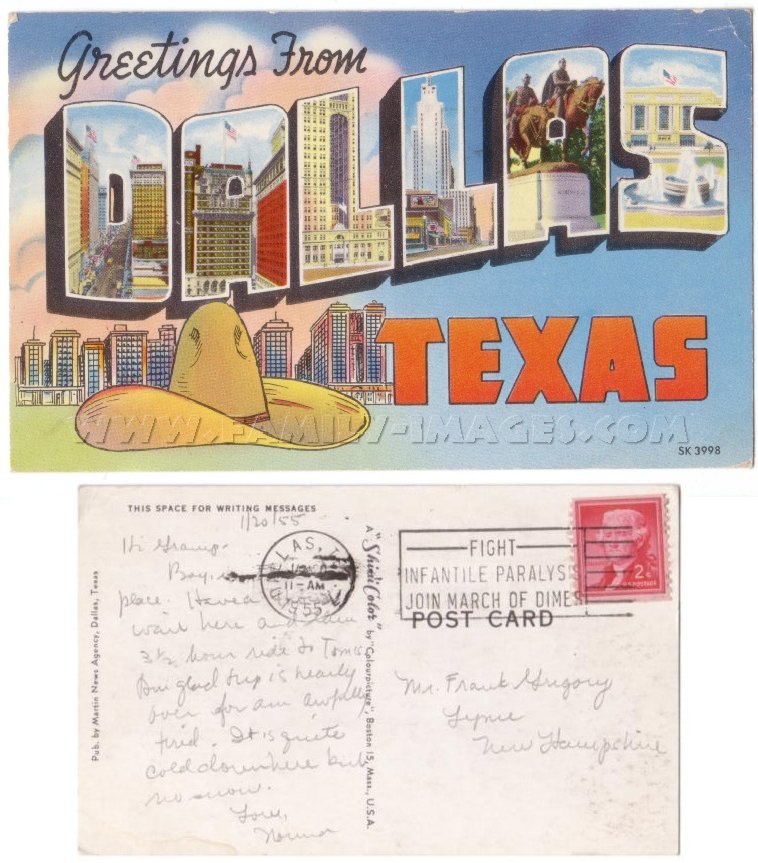 Greetings From
DALLAS
TEXAS
WWW.FAMILY-IMAGES.COM
SK 3998
THIS SPACE FOR WRITING MESSAGES
1/20/55
Hi Gramp-
Boy,
place. Have a
wait here and
3 1/2 hour ride to Tom's
Am glad trip is nearly
over for am awfully
tired. It is quite
cold down here but
no snow.
Love,
Norma
Pub. by Martin News Agency, Dallas, Texas
A "Shini Color" by "Colourpicture", Boston 15, Mass., U.S.A.
LAS, T
11-AM
1955
FIGHT
INFANTILE PARALYSIS
JOIN MARCH OF DIMES
2¢
U.S. POSTAGE
POST CARD
Mr. Frank Grigory
Lyme
New Hampshire